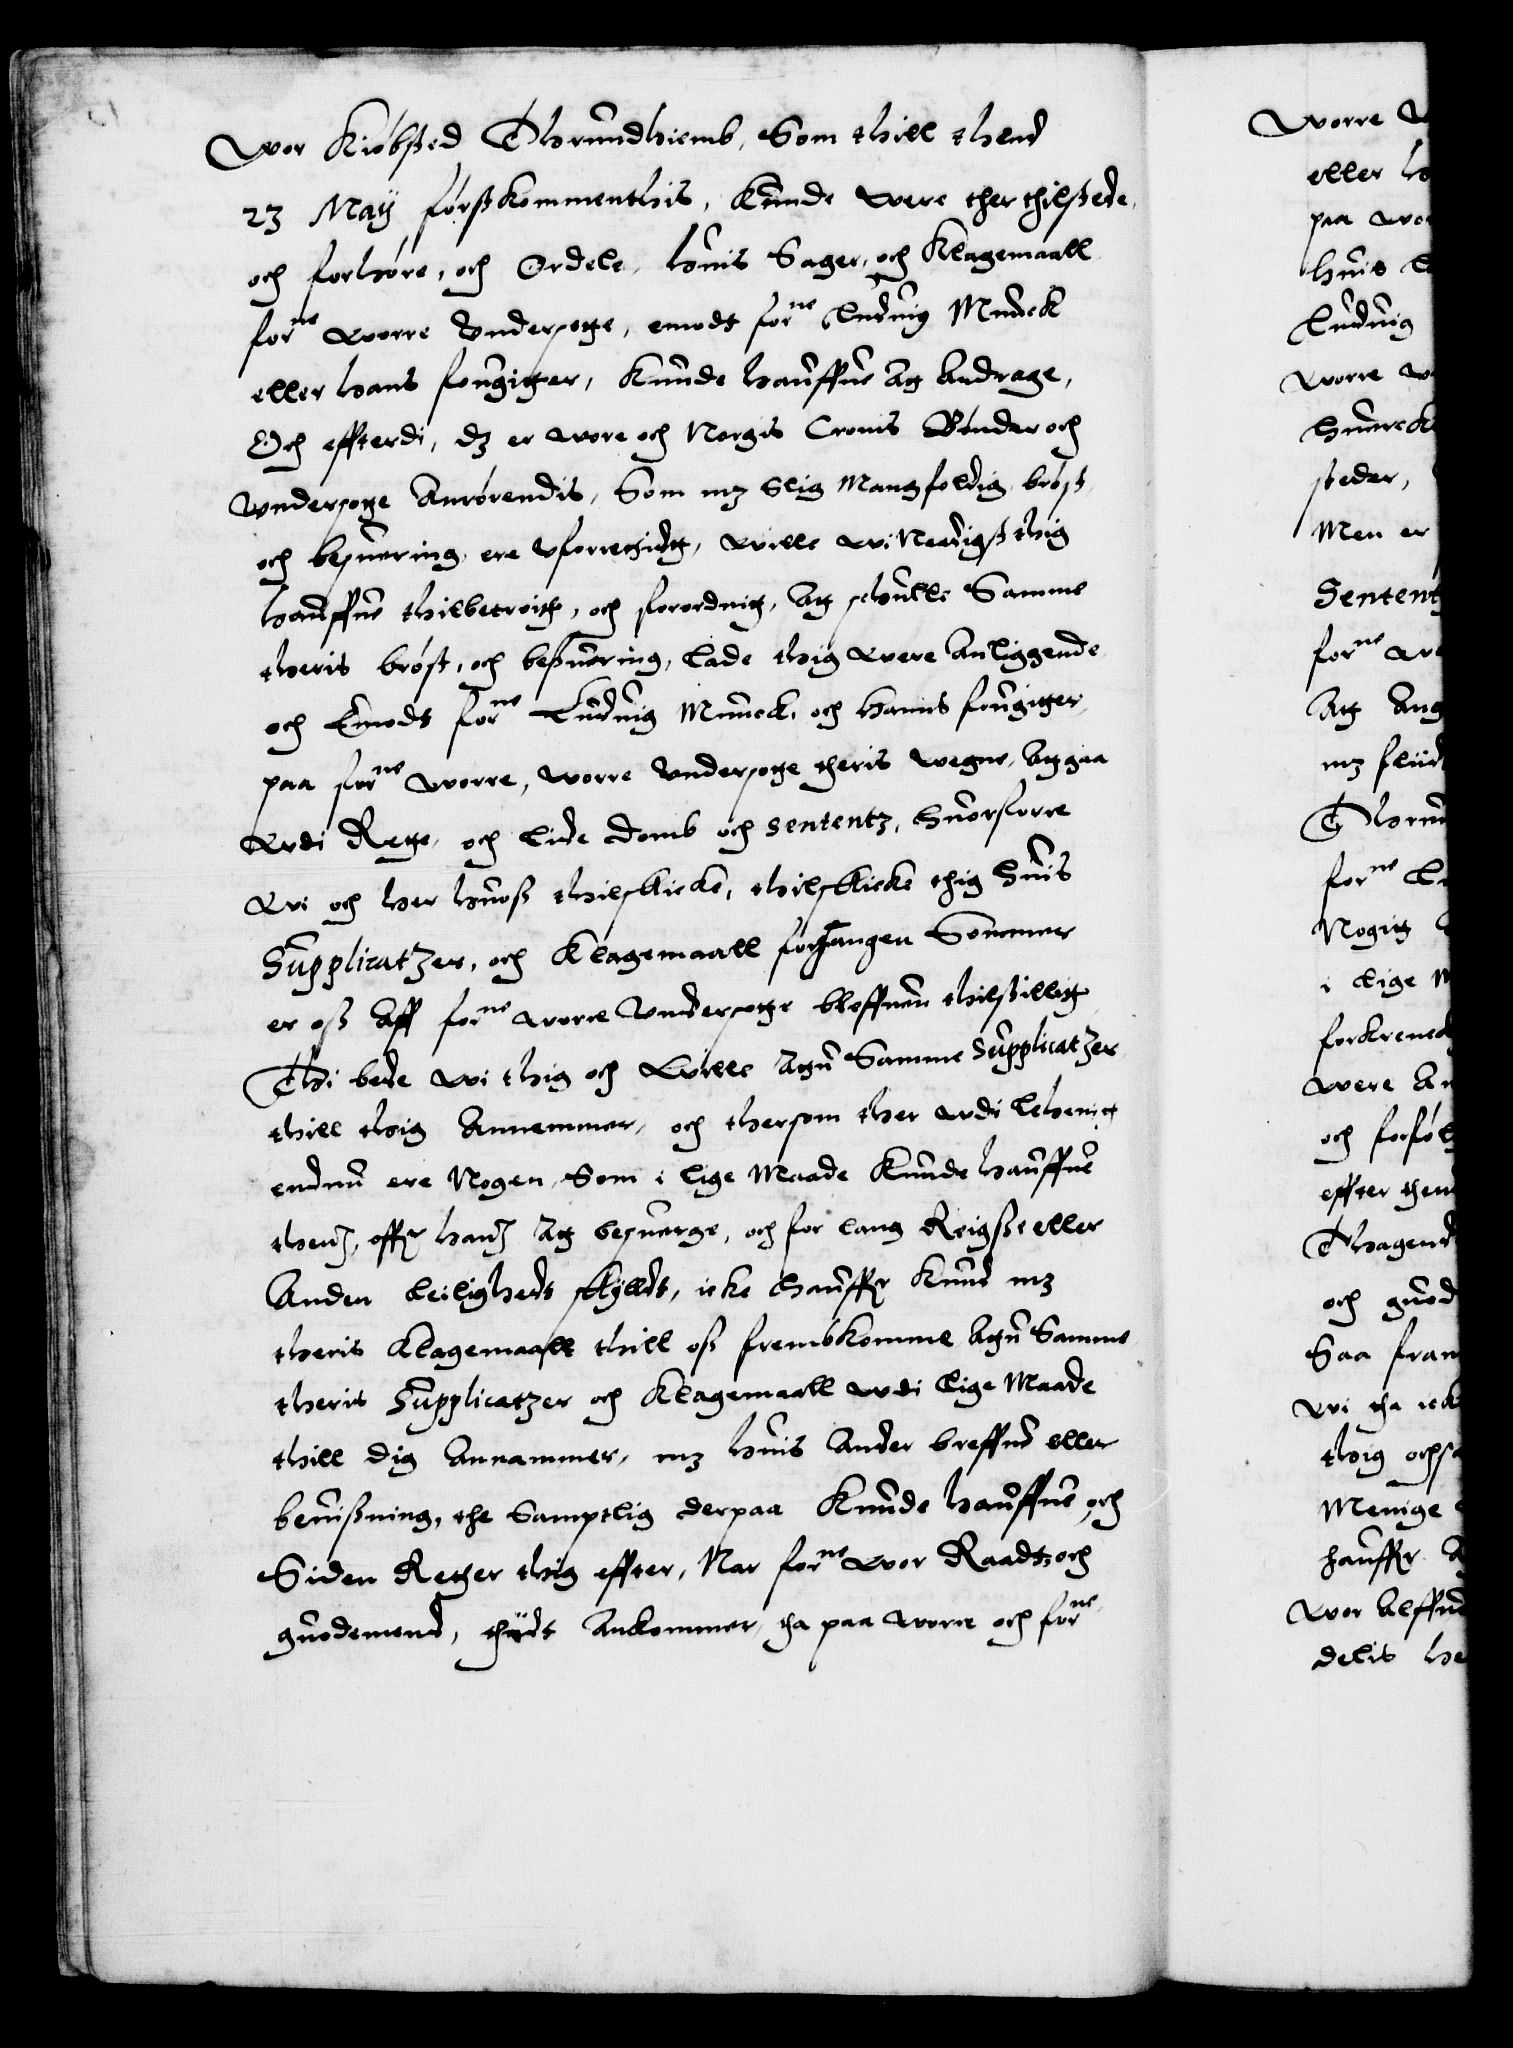 Wor Kiøbsted Thrundhiemb, Som thill thend
23 Maÿ førstkommenthis, kunde were ther thilstede,
och forhøre, och Ordele, huis Sager, och Klagemaall
forne worre Undersotte, emodt forne Ludvig Munck
eller hans fougitter, kunde hauffue At Andrage,
Och effterdi, dz er wore och Norgis Cronis Bønder och
Undersotte Anrørendis, Som mz Slig Mangfoldig brøst
och besuering ere Uforrettidt, wille wi Nedigst thig
hauffue thilbetroitt, och forordnit, At schulle Samme
theris brøst, och besuering, lade thig were Anliggende
och Emodt forne Ludvig Munck, och hanns fougitter,
paa forne worre, worre Undersotte theris wegne, At gaa
wdi Rette, och lide domb och sententz, Huorforre
wi och her huoss thilskicke, thilskicke thig Huis
Supplicatzer, och Klagemaall forgangen Sommer
er oss Aff forne worre Undersotte bleffuen thilstillitt
Thi bede wi thig och wille Attu Samme Supplicatzer
thill thig Annemmer, och thersom ther wdi lehenitt
endnu ere Nogen, Som i lige Maade kunde hauffue
thenn, offr hann At besuerge, och for lang Reigsse eller
Anden leilighedt skyldt, icke hauffr kund mz
theris Klagemaall thill oss frembkomme Attu Samme
theris Supplicatzer och Klagemaall wdi lige Maade
thill dig Annammer, mz huis Ander breffue eller
beuissning, the Samptlig derpaa kunde hauffue, och
Siden Retter thig effter, Nar forne wor Raadt och
guodemend, thidt Ankommer, tha paa worre och forne
Worre
eller
paa
huis
Ludvig
worre
Huerck
steder,
Men er
Sentent
forne
At Ang
mz
Thrun
forne
Nogit
i lige
were An
och forføl
effter then
Thagend
och guod
Saa fram
wi tha
thig
Menige
hauffr
wor
delis